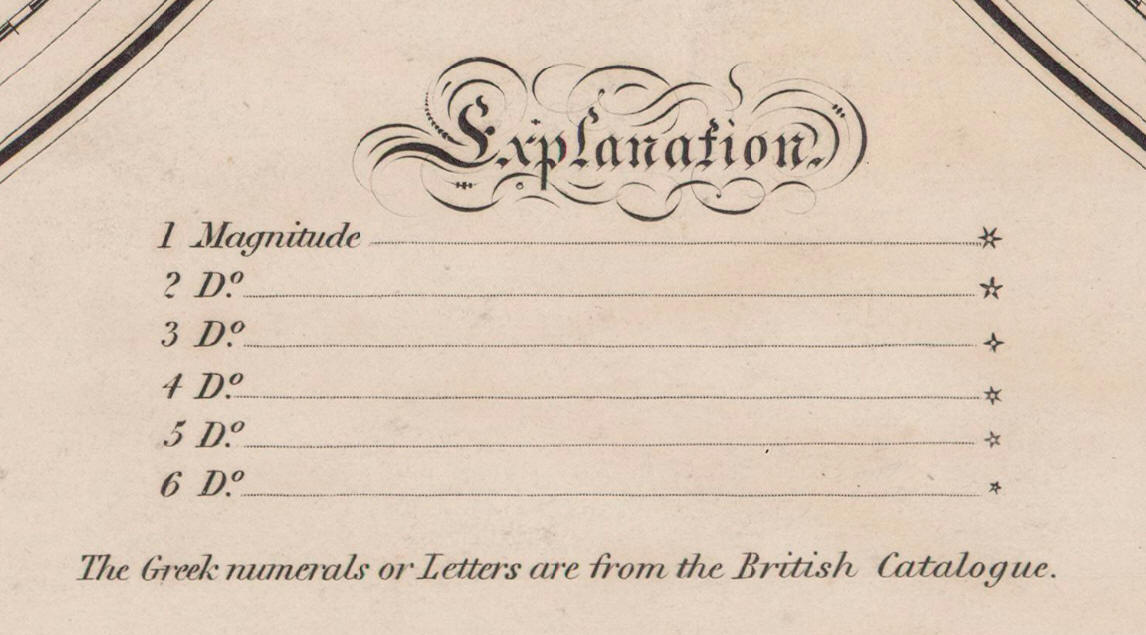 Explanation.
1 Magnitude
2 D.º
3 D.º
4 D.º
5 D.º
6 D.º
The Greek numerals or Letters are from the British Catalogue.